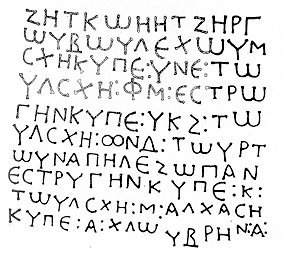 ΖΗΤΚΩΗΗΤΖΗΡΓ
ΩΥΒΩΥΛΕΧΩΥΜ
CΧΗΚΥΠΕ:ΥΝΕ:ΤΩ
ΥΛCΧΗ:ΦΜ:ΕCΤΡΩ
ΓΗΝΚΥΠΕ:ΥΚΖ:ΤΩ
ΥΛCΧΗ:ΩΝΔ:ΤΩΥΡΤ
ΩΥΝΑΠΗΛΕΖΩΠΑΝ
ΕCΤΡΥΓΗΝΚΥΠΕ:Κ:
ΤΩΥΛCΧΗ:Μ:ΑΛΧΑCΗ
ΚΥΠΕ:Α:ΧΛΩ ΥΒΡΗΝ:Α: